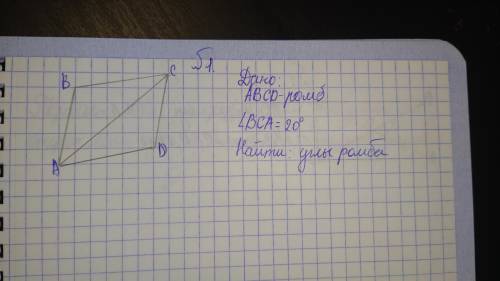 №1.
Дано:
ABCD-ромб
∠BCA=20°
Найти: углы ромба
B
C
A
D